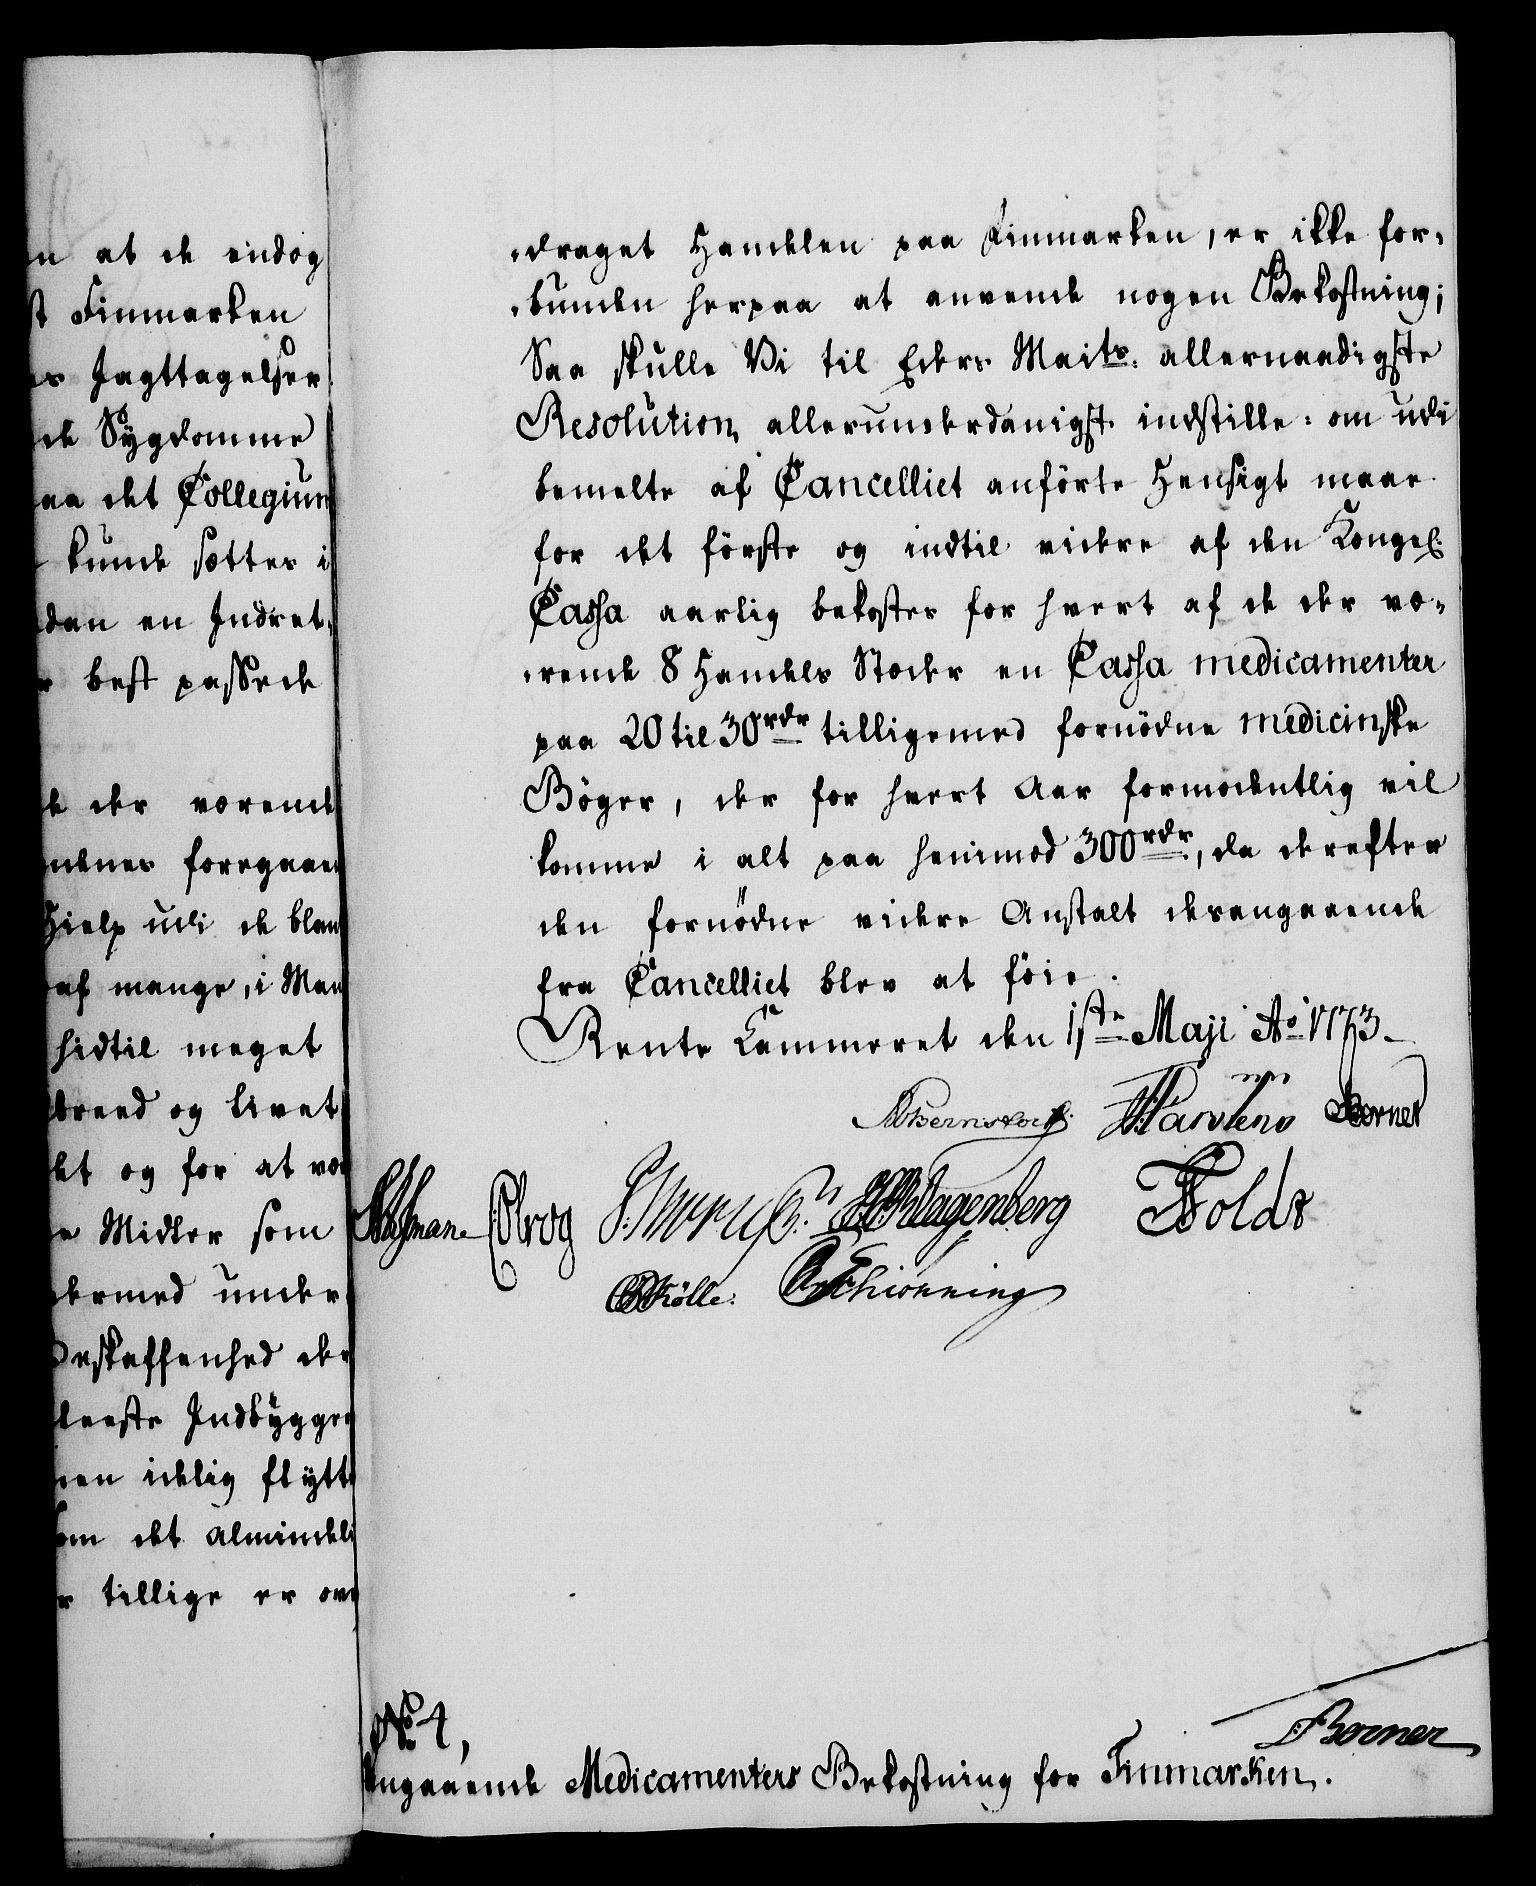 n at de endog
st Finmarken
es Jagttagelser
de Sygdomme
aa det Collegium
kunde sættes i
dan en Indret-
r best passede
de der værende
ndenes foregaaen
Hielp udi de blan
af mange, i Man
hidtil meget
bred og livet
et og for at væ
e Midler som
dermed under
Beskaffenhed der
leeste Indbygger
nen idelig flytte
om det almindeli
r tillige er ov
-draget Handelen paa Finmarken, er ikke for-
-bunden herpaa at anvende nogen Bekostning;
Saa skulle Vi til Eders Maits. allernaadigste
Resolution, allerunderdanigst indstille: om udi
bemelte af Cancelliet anförte Hensigt maae
for det förste og indtil videre af den Kongel.
Cassa aarlig bekostes for hvert af de der væ-
-rende 8 Handels Stæder en Cassa medicamenter
paa 20 til 30 rdr tilligemed fornödne medicinske
Böger, der for hvert Aar formodentlig vil
komme i alt paa henimod 300 rdr, da derefter
den fornödne videre Anstalt desangaaende
fra Cancelliet blev at föie.
Rente Cammeret den 1ste Maji Ao 1773.
ABernstorff. Martens Borner
Olrog Klagenberg Holdt
Kölle. Schiönning
No. 4,
Borner
Angaaende Medicamenters Bekostning for Finmarken.